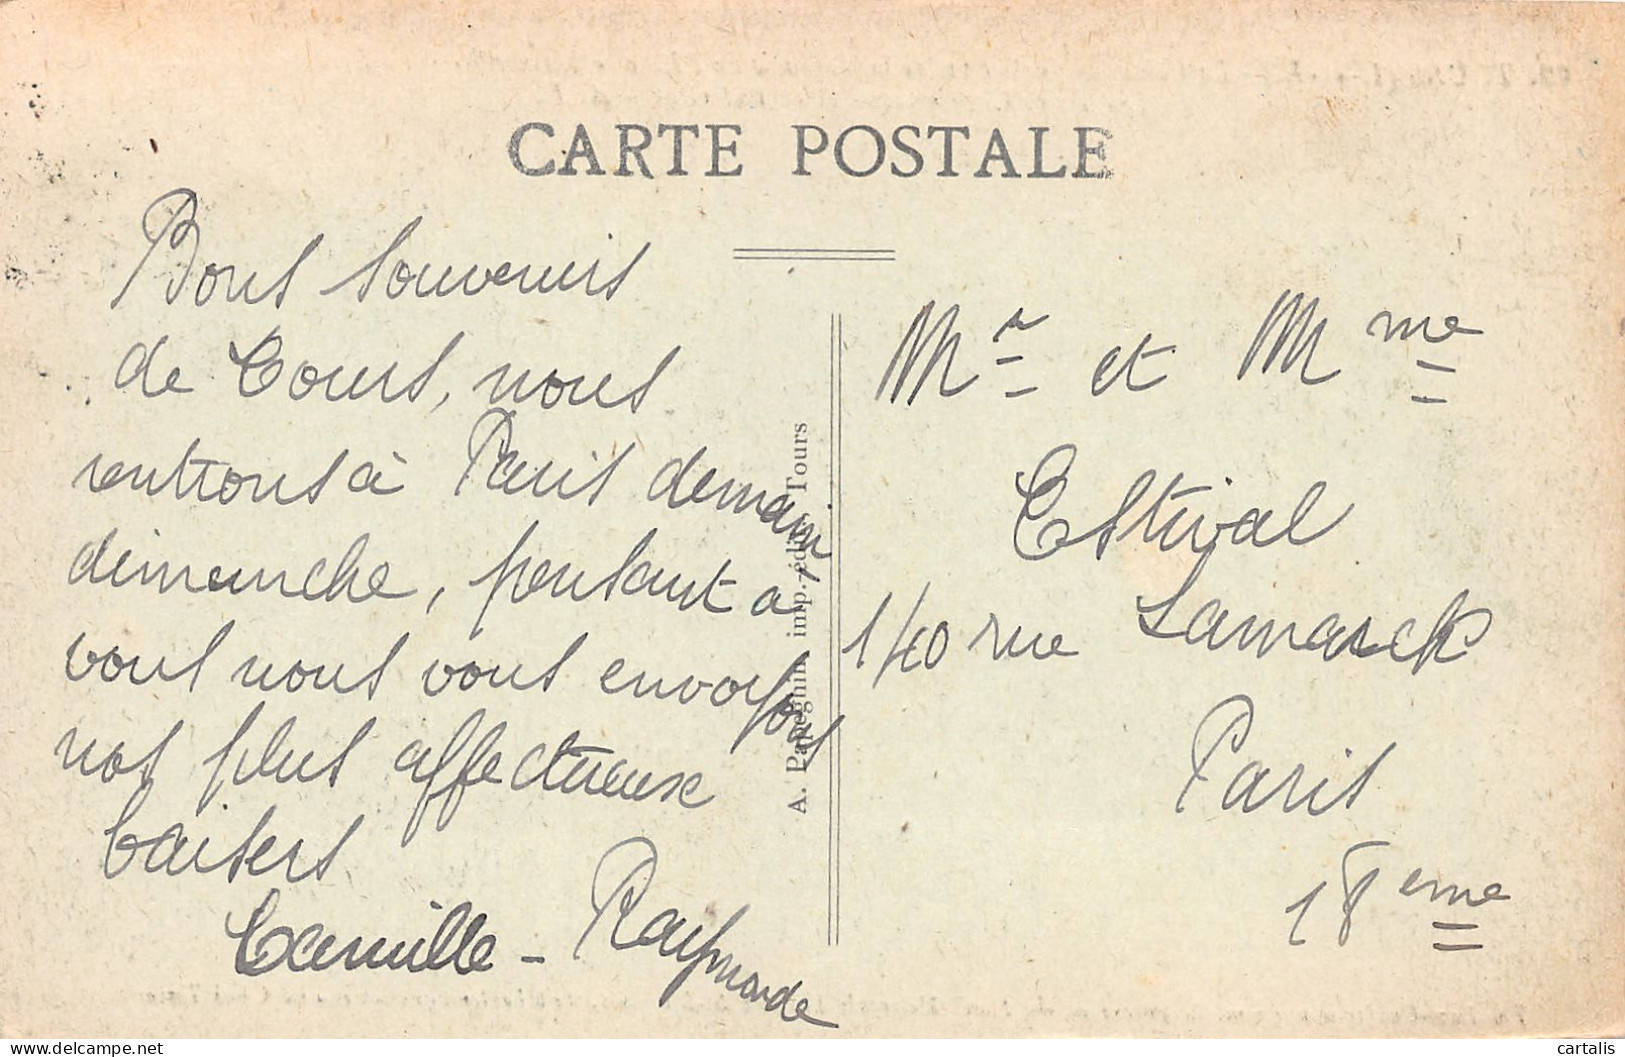 CARTE POSTALE
Bons souvenirs
de Tours, nous
rentrons à Paris demain
dimanche, pensant a
vous nous vous envoyons
nos plus affectueux
baisers
Camille - Raymonde
A. Papeghin imp.-édit. Tours
Mr et Mme
Estival
140 rue Lamarck
Paris
18eme
www.cartalis.com
cartalis